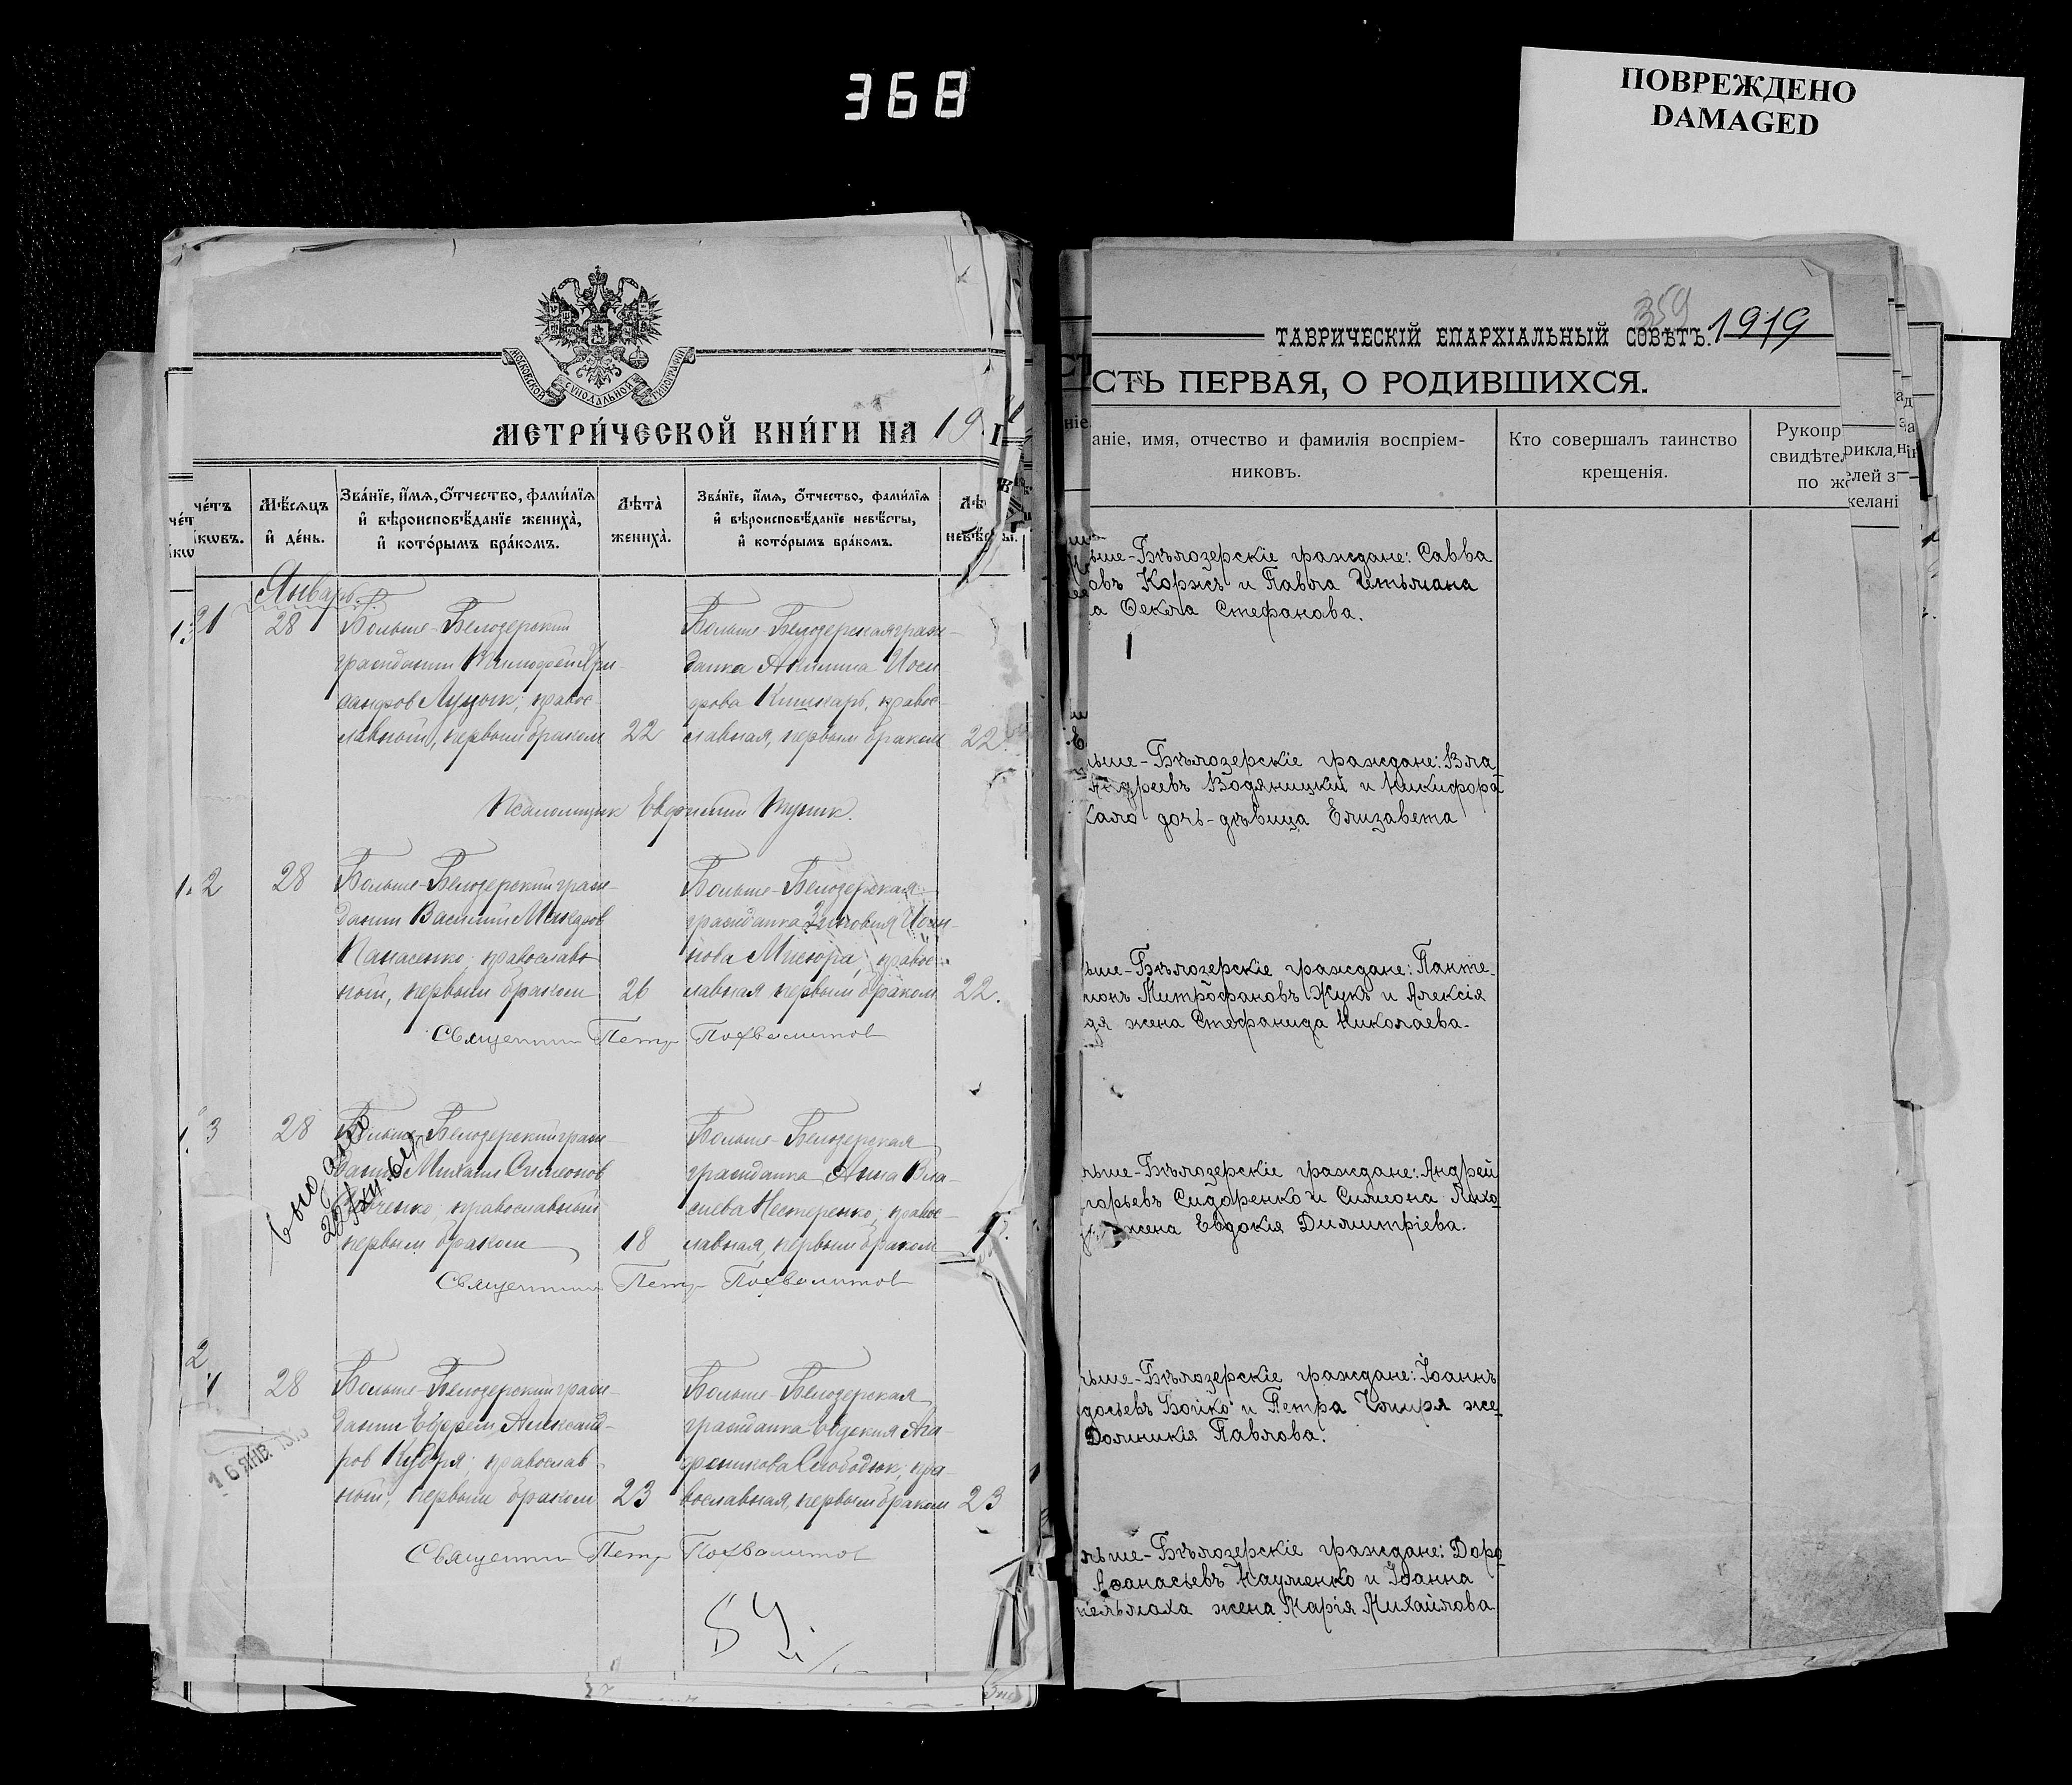 368
ПОВРЕЖДЕНО
DAMAGED
МОСКОВСКОЙ СѴНОДАЛЬНОЙ ТИПОГРАФІИ
МЕТРИ́ЧЕСКОЙ КНИ́ГИ НА 19
че́тъ
кωвъ.
Мѣ́сѧцъ
и҆ де́нь.
Зва́нїе, и҆́мѧ, ѻ҆́тчество, фами́лїѧ
и҆ вѣроисповѣ́данїе жениха̀,
и҆ кото́рымъ бра́комъ.
Лѣта̀
жениха̀.
Зва́нїе, и҆́мѧ, ѻ҆́тчество, фами́лїѧ
и҆ вѣроисповѣ́данїе невѣ́сты,
и҆ кото́рымъ бра́комъ.
Январь.
28
Больше-Белозерский
гражданин
Луцык; правос-
лавный, первым браком
22
Больше-Белозерская граж-
данка Акилина Иоси
фова Кишкарь, правос-
лавная, первым браком
22.
Псаломщик Евфимий
2
28
Больше-Белозерский граж-
данин Василий
Панасенко; православ
ный, первым браком
26
Больше-Белозерская
гражданка Зиновия Иоан-
нова Мисюра; правос-
лавная первым браком
22.
Священник Петр
3
28
Больше-Белозерский граж
данин Михаил Симеонов
православный
первым браком
18
Больше-Белозерская
гражданка Анна Вла-
сиева Нестеренко; правос-
лавная, первым браком
выдано
Священник Петр
28
Больше-Белозерский граж-
данин Ефрем Александ-
ров православ
ный, первым браком
23
Больше-Белозерская
гражданка Евдокия Ага-
фоникова Слободюк; пра-
вославная, первым браком
23
16 ЯНВ
Священник Петр
359
ТАВРИЧЕСКІЙ ЕПАРХІАЛЬНЫЙ СОВѢТЪ. 1919
СТЬ ПЕРВАЯ, О РОДИВШИХСЯ.
аніе, имя, отчество и фамилія воспріем-
никовъ.
Кто совершалъ таинство
крещенія.
Рукопр
свидѣтел
по ж
ьше-Бѣлозерскіе граждане: Савва
овъ Коржъ и Павла Гетьмана
а Ѳекла Стефанова.
ьше-Бѣлозерскіе граждане: Вла-
Андреевъ Водяницкій и Никифора
Кало дочь-дѣвица Елизавета
ьше-Бѣлозерскіе граждане: Панте-
монъ Митрофановъ Жукъ и Алексія
дя жена Стефанида Николаева.
льше-Бѣлозерскіе граждане: Андрей
горьевъ Сидоренко и Симеона Лихо
жена Евдокія Димитріева.
льше-Бѣлозерскіе граждане: Іоаннъ
досьевъ Бойко и Петра Чмиря же-
Домникія Павлова.
льше-Бѣлозерскіе граждане: Доро
Аѳанасьевъ Науменко и Іоанна
жена Марія Михайлова